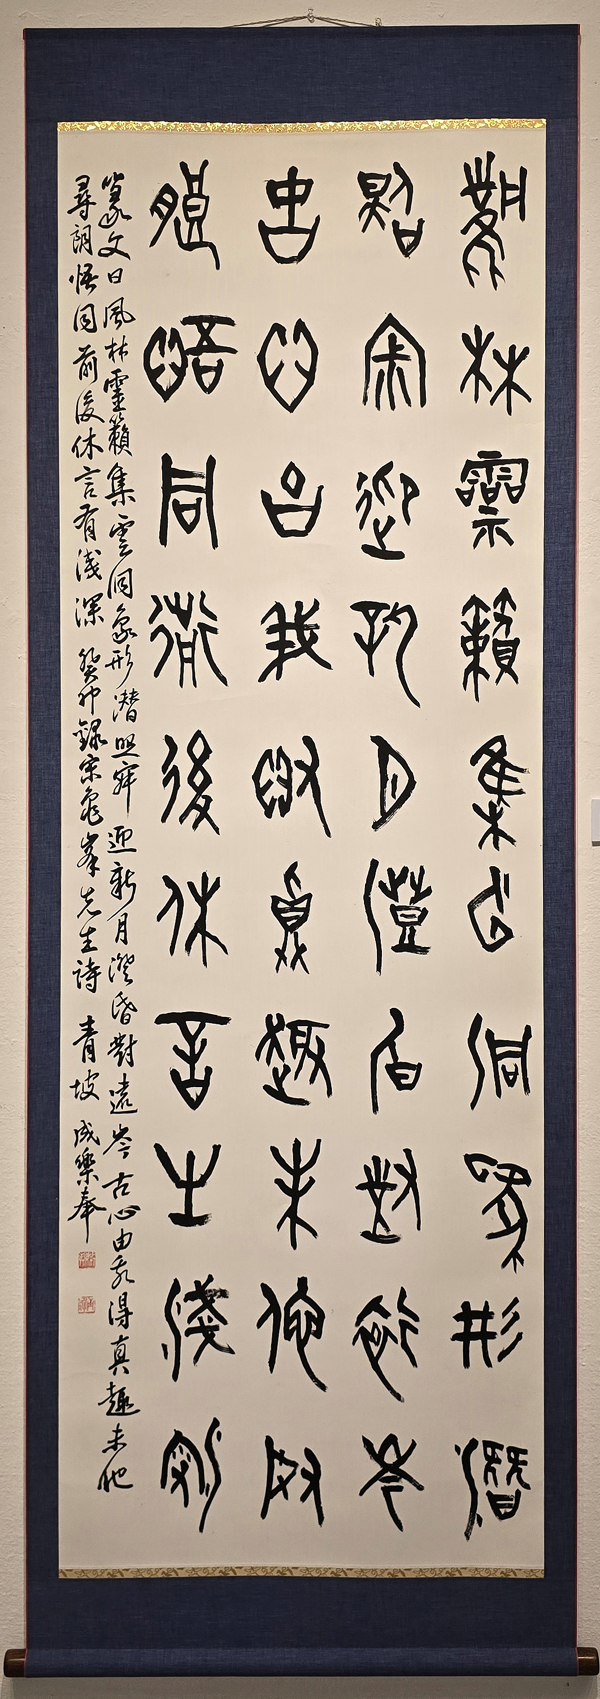 風林靈籟集雲洞象形潛
照迎新月澄昏對遠岑
古心由我得真趣未他尋
朗悟同前後休言有淺深
篆文曰風林靈籟集雲洞象形潛照迎新月澄昏對遠岑古心由我得真趣未他
尋朗悟同前後休言有淺深 癸卯錄宋龜峯先生詩 青坡 成樂奉